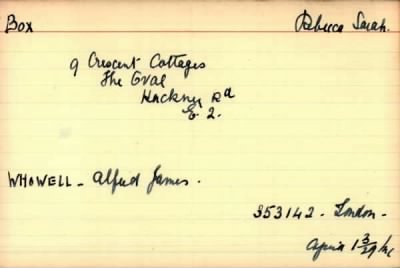 Box Rebecca Sarah.
9 Crescent Cottages
The Oval
Hackney Rd
E. 2.
WHOWELL - Alfred James.
353142 - London -
April 1 3/29